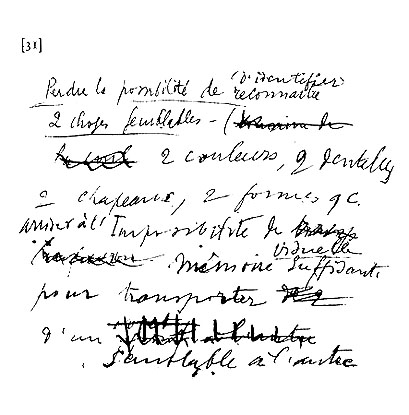 [31]
Perdre la possibilité de (d'identifier
reconnaitre
2 choses semblables –
2 couleurs, 2 dentelles
2 chapeaux, 2 formes qc.
arriver à l'Impossibilité de
mémoire visuelle suffisante
pour transporter
d'un
semblable à l'autre